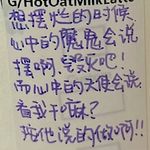 G/HotOatMilkLatte
想摆烂的时候
心中的魔鬼会说
摆啊，毁灭吧！
而心中的天使会说
看我干嘛？
按他说的做啊!!